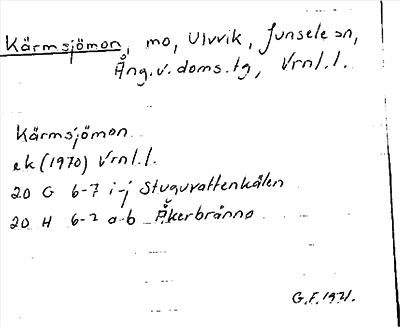 Kärmsjömon, mo, Ulvvik, Junsele sn,
Ång.v.doms.tg, Vrnl.l.
Kärmsjömon
ek (1970) Vrnl.l.
20 G 6-7 i-j Stuguvattenkälen
20 H 6-7 a-b Åkerbränna
G.F. 1971.